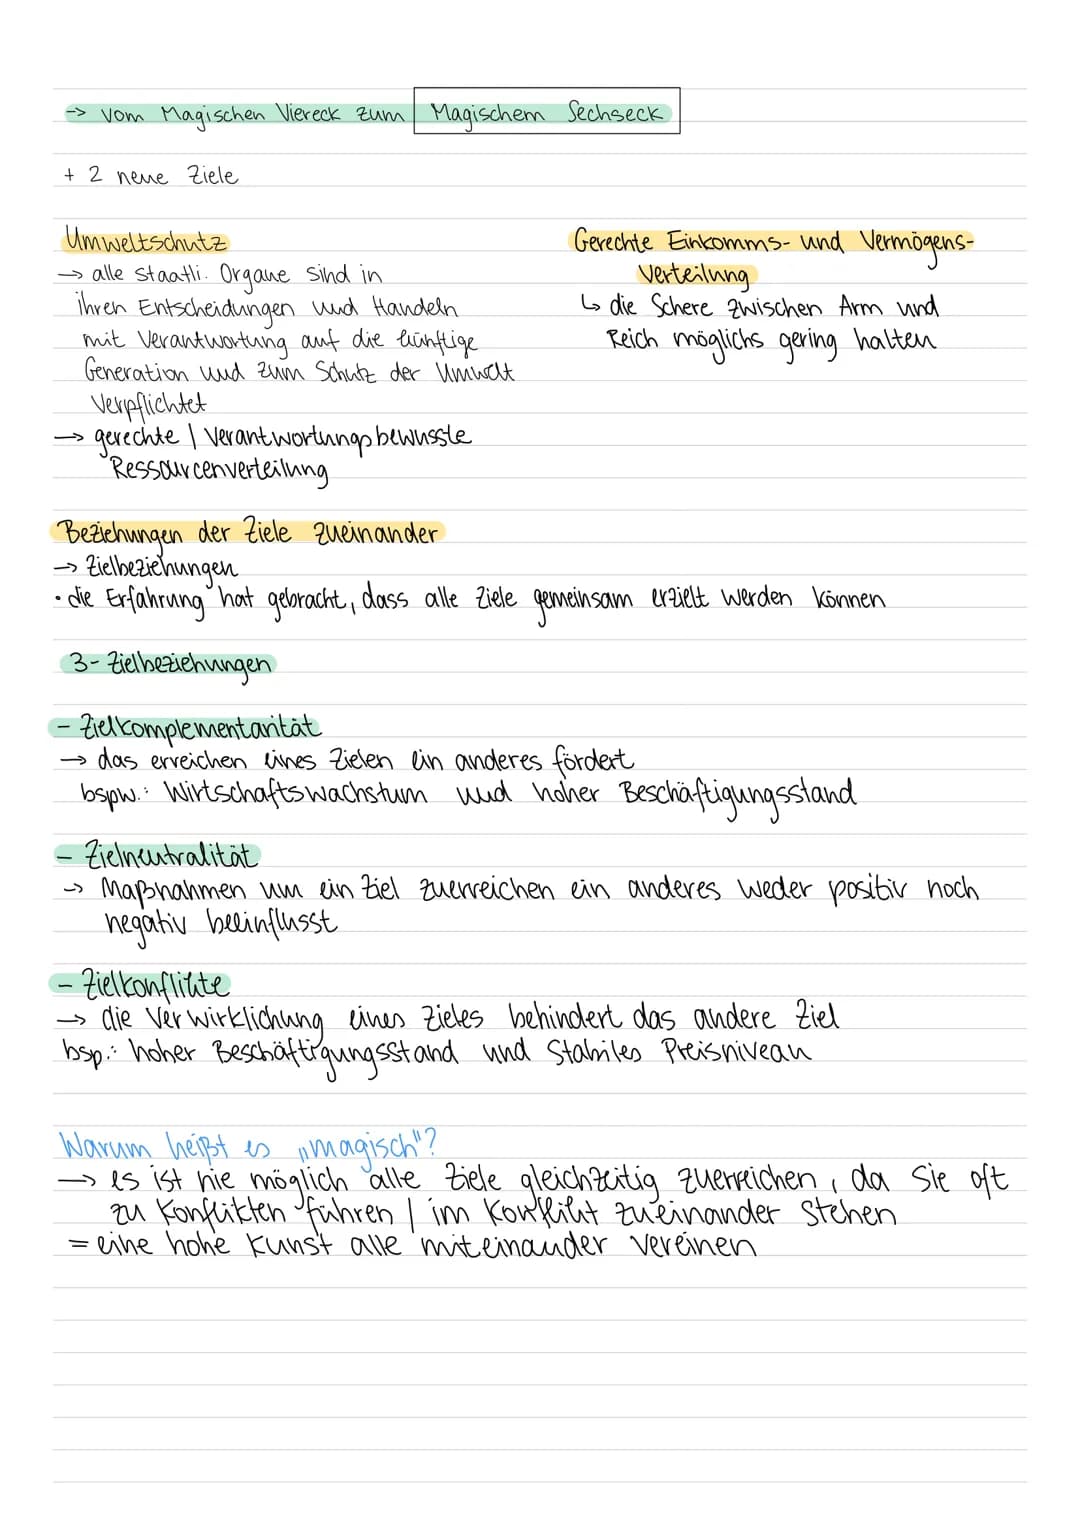 -> vom Magischen Viereck zum Magischem Sechseck
+ 2 neue Ziele
Umweltschutz
→ alle staatli. Organe sind in
ihren Entscheidungen und Handeln
mit Verantwortung auf die künftige
Generation und zum Schutz der Umwelt
Verpflichtet
→ gerechte / Verantwortungsbewusste
Ressourcenverteilung
Gerechte Einkomms- und Vermögens-
Verteilung
↳ die Schere zwischen Arm und
Reich möglichs gering halten
Beziehungen der Ziele zueinander
→ Zielbeziehungen
• die Erfahrung hat gebracht, dass alle Ziele gemeinsam erzielt werden können
3- Zielbeziehungen
- Zielkomplementarität
→ das erreichen eines Zielen ein anderes fördert
bspw.: Wirtschaftswachstum und hoher Beschäftigungsstand
- Zielneutralität
-> Maßnahmen um ein Ziel zuerreichen ein anderes weder positiv noch
negativ beeinflusst
- Zielkonflikte
→ die Verwirklichung eines Zieles behindert das andere Ziel
bsp.: hoher Beschäftigungsstand und Stabiles Preisniveau
Warum heißt es „magisch"?
→ es ist nie möglich alle Ziele gleichzeitig zuerreichen, da Sie oft
zu Konflikten führen / im Konflikt zueinander Stehen
= eine hohe Kunst alle miteinander vereinen